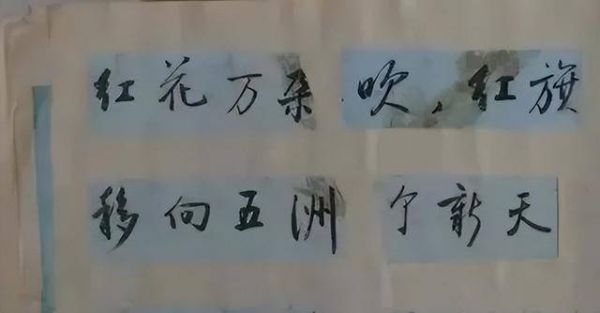 红花万朵吹，红旗
移向五洲个新天